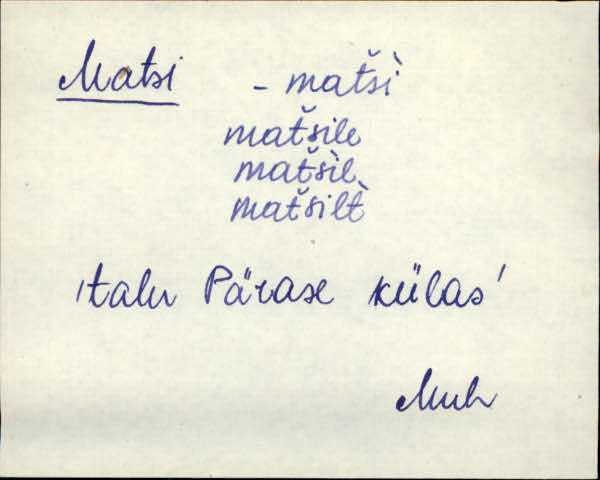 Matsi - matši̇̀
matšile
matšìl
matšilt̀
'talu Pärase külas'
Muh